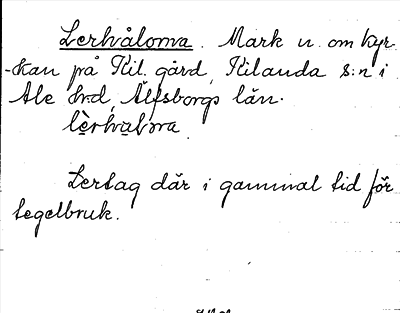 Lerhvåloma. Mark n. om kyr-
-kan på Kil. gård, Kilanda s:n i
Ale hrd, Älfsborgs län.
Lertag där i gammal tid för
tegelbruk.